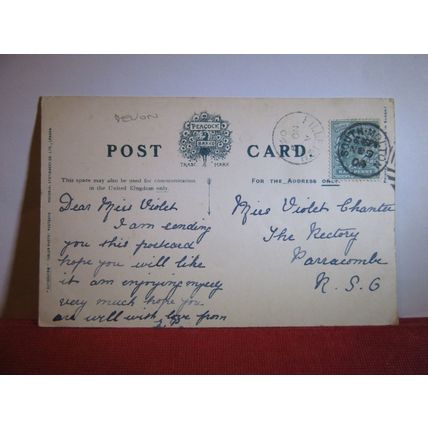 DEVON
PEACOCK
BRAND
TRADE MARK
POST CARD.
This space may also be used for communication
in the United Kingdom only.
FOR THE ADDRESS ONLY.
HALF PENNY
SOUTH MOLTON
Dear Miss Violet
I am sending
you this postcard
hope you will like
it am enjoying myself
very much hope you
are will wish love from
Miss Violet Chanter
The Rectory
Parracombe
R. S. O